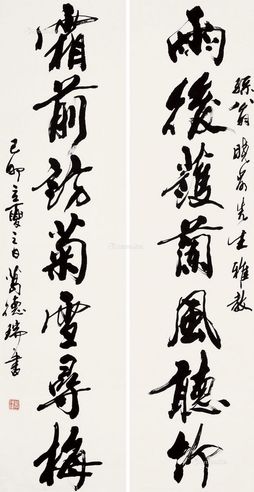 雨後護蘭風聽竹
霜前訪菊雪尋梅
曉岑先生雅教
己卯立夏之日葛德瑞書